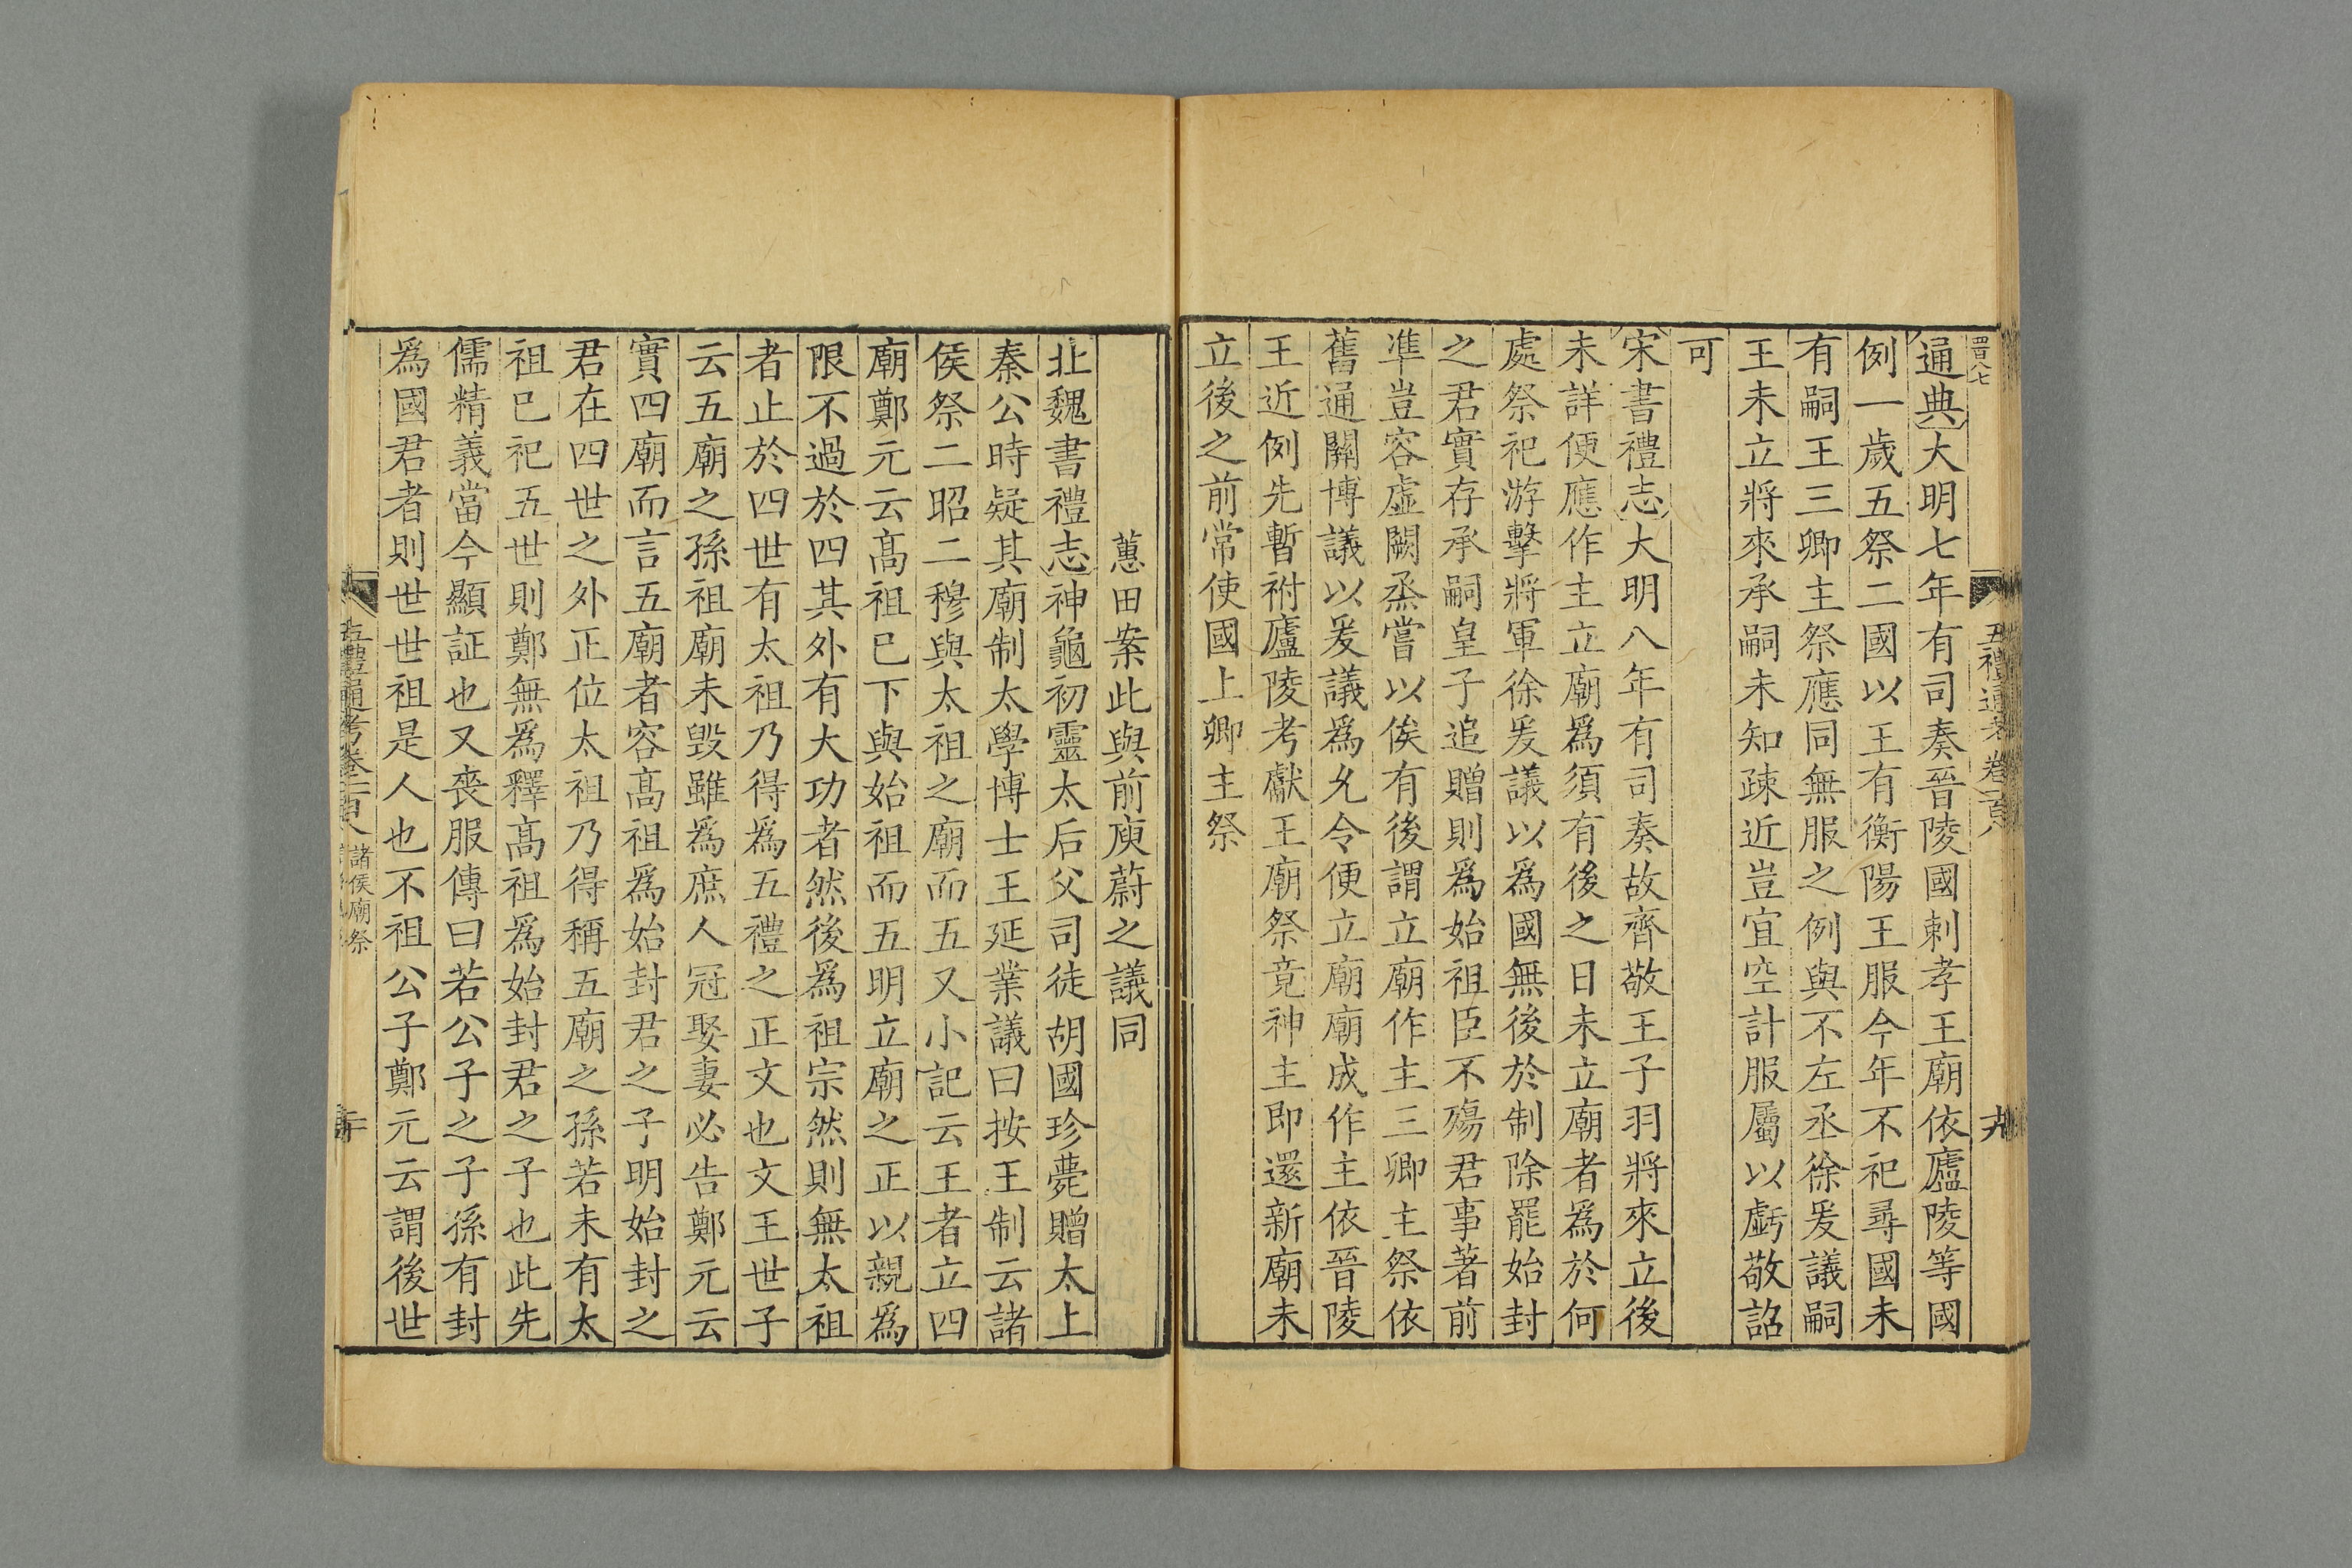 四百八七
通典大明七年有司奏晉陵國刺孝王廟依廬陵等國
例一歲五祭二國以王有衡陽王服今年不祀尋國未
有嗣王三卿主祭應同無服之例與不左丞徐爰議嗣
王未立將來承嗣未知疎近豈宜空計服屬以虧敬詔
可
宋書禮志大明八年有司奏故齊敬王子羽將來立後
未詳便應作主立廟爲須有後之日未立廟者爲於何
處祭祀游擊將軍徐爰議以爲國無後於制除罷始封
之君實存承嗣皇子追贈則爲始祖臣不殤君事著前
準豈容虛闕烝嘗以俟有後謂立廟作主三卿主祭依
舊通關博議以爰議爲允令便立廟廟成作主依晉陵
王近例先暫祔廬陵考獻王廟祭竟神主即還新廟未
立後之前常使國上卿主祭
五禮通考卷一百八
九
蕙田案此與前庾蔚之議同
北魏書禮志神龜初靈太后父司徒胡國珍薨贈太上
秦公時疑其廟制太學博士王延業議曰按王制云諸
侯祭二昭二穆與太祖之廟而五又小記云王者立四
廟鄭元云髙祖已下與始祖而五明立廟之正以親爲
限不過於四其外有大功者然後爲祖宗然則無太祖
者止於四世有太祖乃得爲五禮之正文也文王世子
云五廟之孫祖廟未毀雖爲庶人冠娶妻必告鄭元云
實四廟而言五廟者容髙祖爲始封君之子明始封之
君在四世之外正位太祖乃得稱五廟之孫若未有太
祖已祀五世則鄭無爲釋髙祖爲始封君之子也此先
儒精義當今顯証也又喪服傳曰若公子之子孫有封
爲國君者則世世祖是人也不祖公子鄭元云謂後世
五禮通考卷一百八
諸侯廟祭
二十